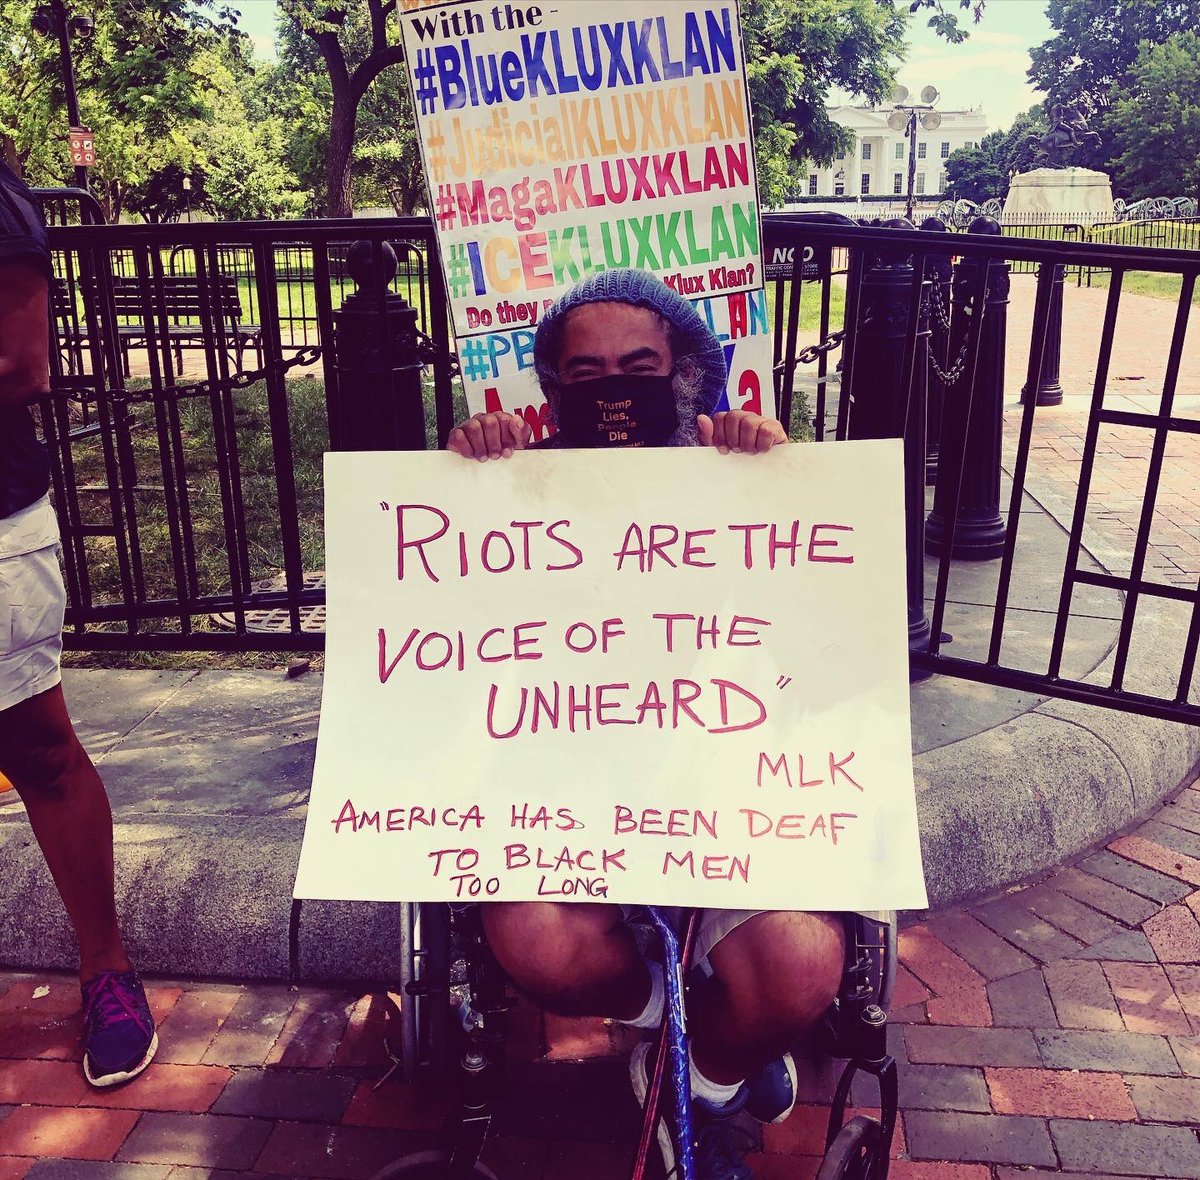 With the -
#BlueKLUXKLAN
#JudicialKLUXKLAN
#MagaKLUXKLAN
#ICEKLUXKLAN
Do they Klux Klan?
#PB LAN
Am a
NO
Trump
Lies,
People
Die
"RIOTS ARE THE
VOICE OF THE
UNHEARD"
MLK
AMERICA HAS BEEN DEAF
TO BLACK MEN
TOO LONG